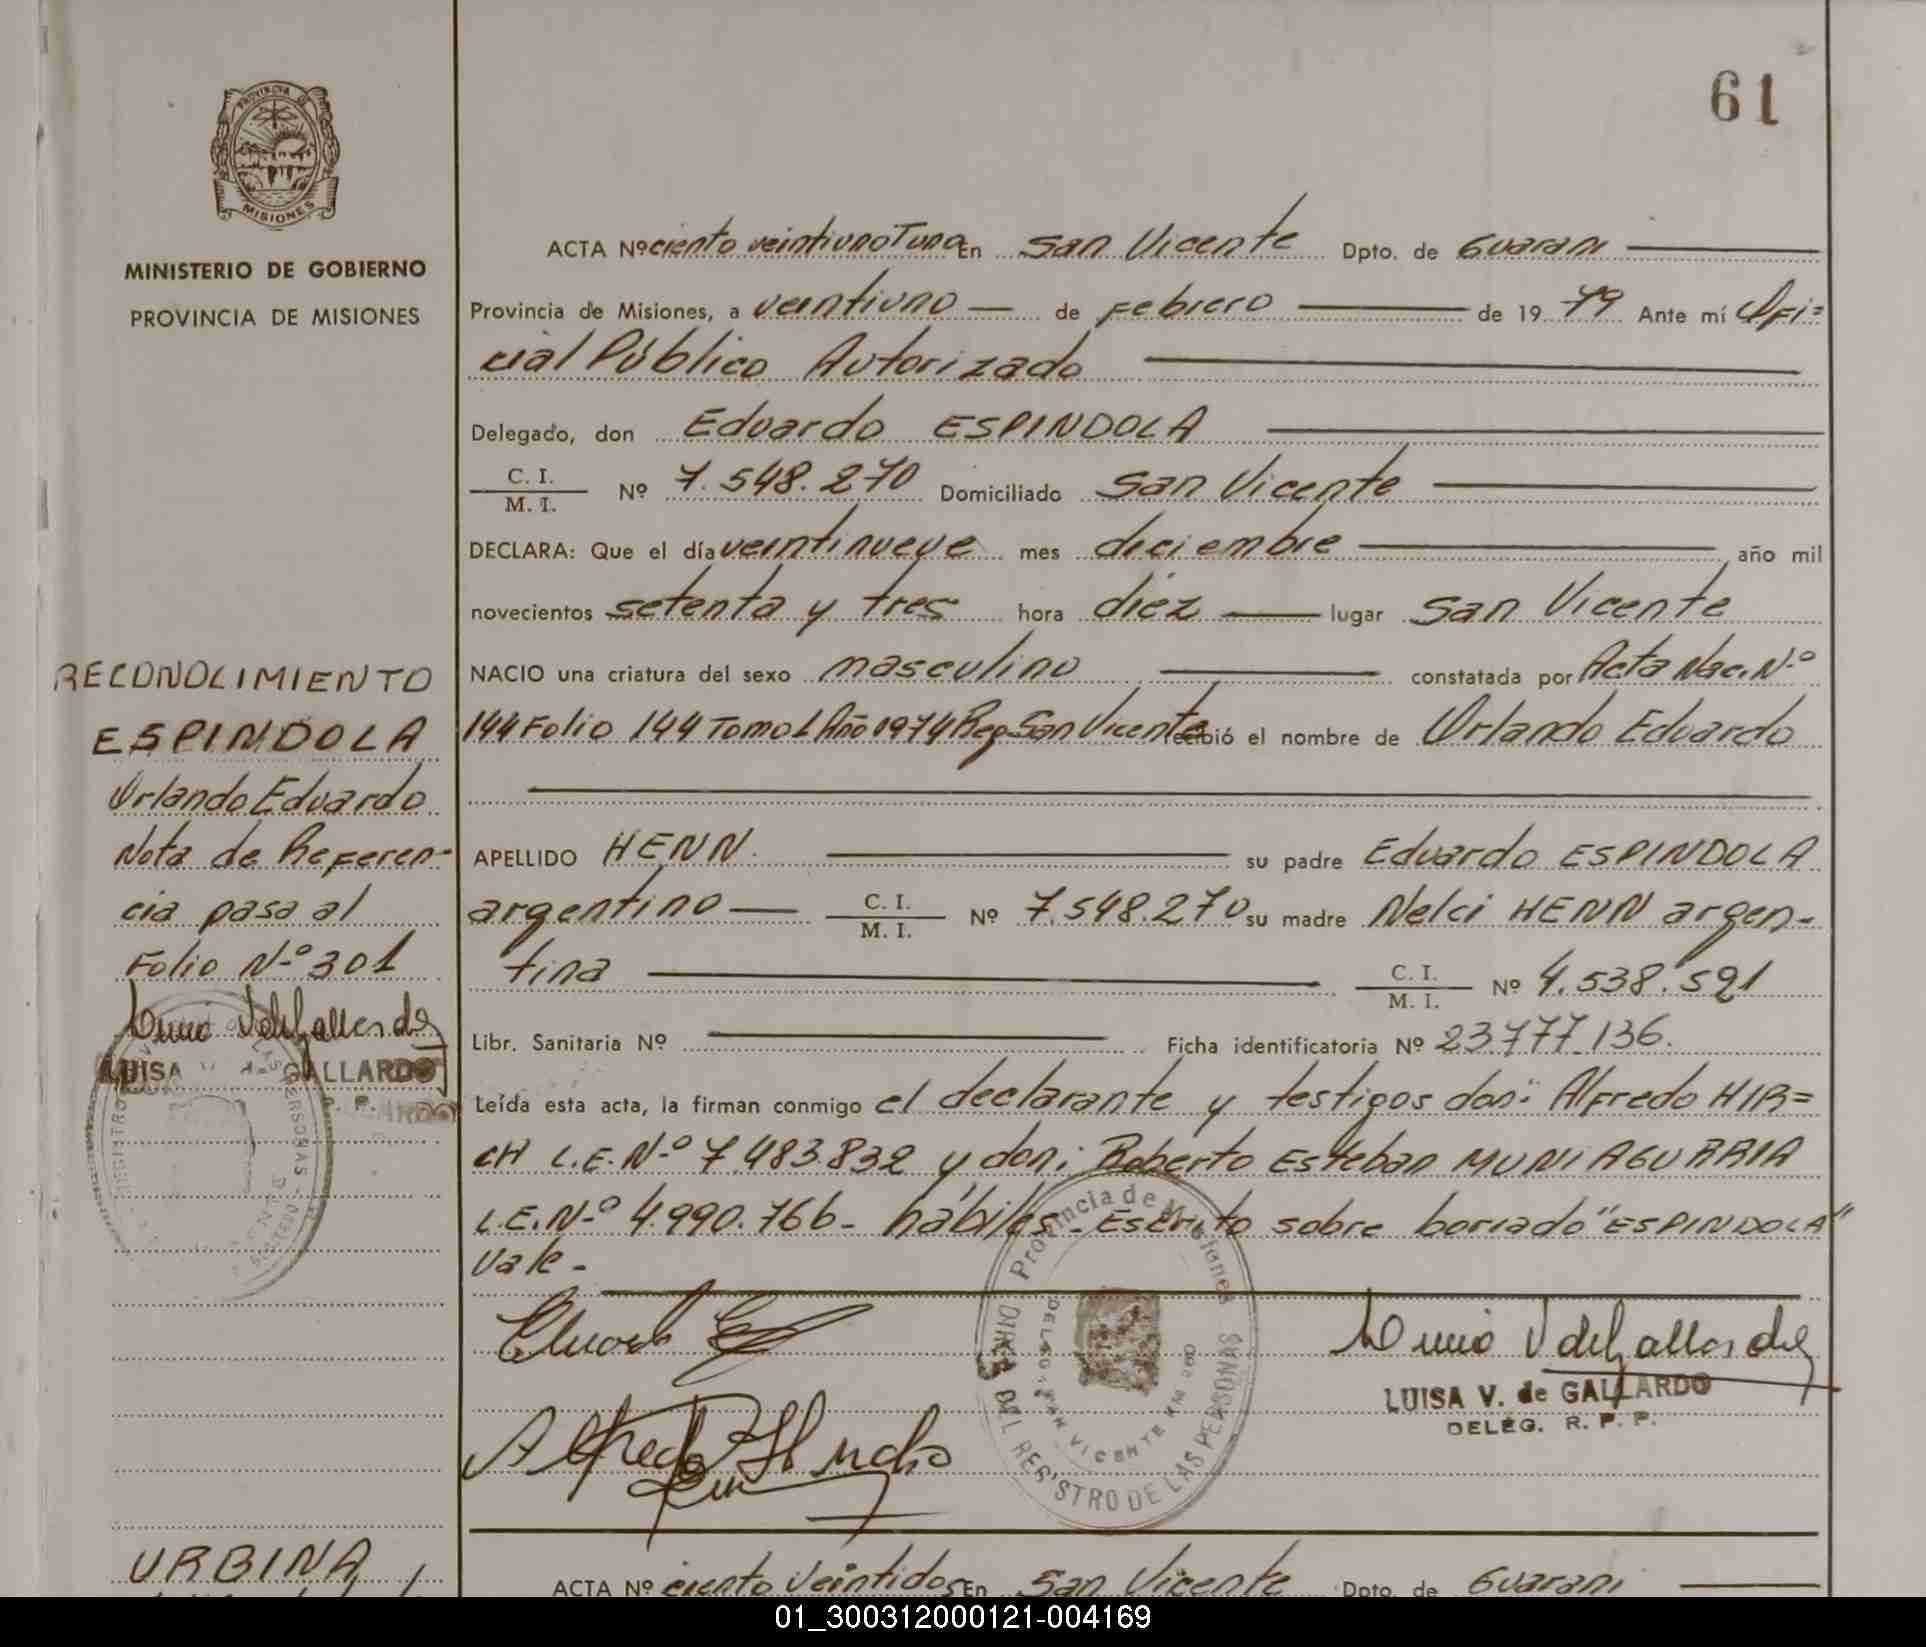 61
PROVINCIA DE
MISIONES
MINISTERIO DE GOBIERNO
PROVINCIA DE MISIONES
RECONOCIMIENTO
ESPINDOLA
Orlando Eduardo
Nota de Referen-
cia pasa al
Folio N-º 301
LUISA V. de GALLARDO
ACTA Nº ciento veintiuno T uno En San Vicente Dpto. de Guarani
Provincia de Misiones, a veintiuno de Febrero de 19 79 Ante mí Ofi=
cial Público Autorizado
Delegado, don Eduardo ESPINDOLA
C. I.
M. I. Nº 7.548.270 Domiciliado San Vicente
DECLARA: Que el día veintinueve mes diciembre año mil
novecientos setenta y tres hora diez lugar San Vicente
NACIO una criatura del sexo masculino constatada por Acta Nac. N-º
144 Folio 144 Tomo 1 Año 1974 Reg San Vicente recibió el nombre de Orlando Eduardo
APELLIDO HENN su padre Eduardo ESPINDOLA
argentino C. I. M. I. Nº 7.548.270 su madre Nelci HENN argen-
tina C. I. M. I. Nº 4.538.521
Libr. Sanitaria Nº Ficha identificatoria Nº 23.777.136.
Leída esta acta, la firman conmigo el declarante y testigos don: Alfredo HIR=
CH L.E. N-º 7.483.832 y don: Roberto Esteban MUNIAGURRIA
L.E. N-º 4.990.766- hábiles- Escrito sobre borrado "ESPINDOLA"
Vale-
Provincia de Misiones
DIREC. DEL REGISTRO DE LAS PERSONAS
DELEG. SAN VICENTE KM 260
LUISA V. de GALLARDO
DELEG. R. P. P.
URBINA
ACTA Nº ciento veintidos En San Vicente Dpto. de Guarani
01_300312000121-004169